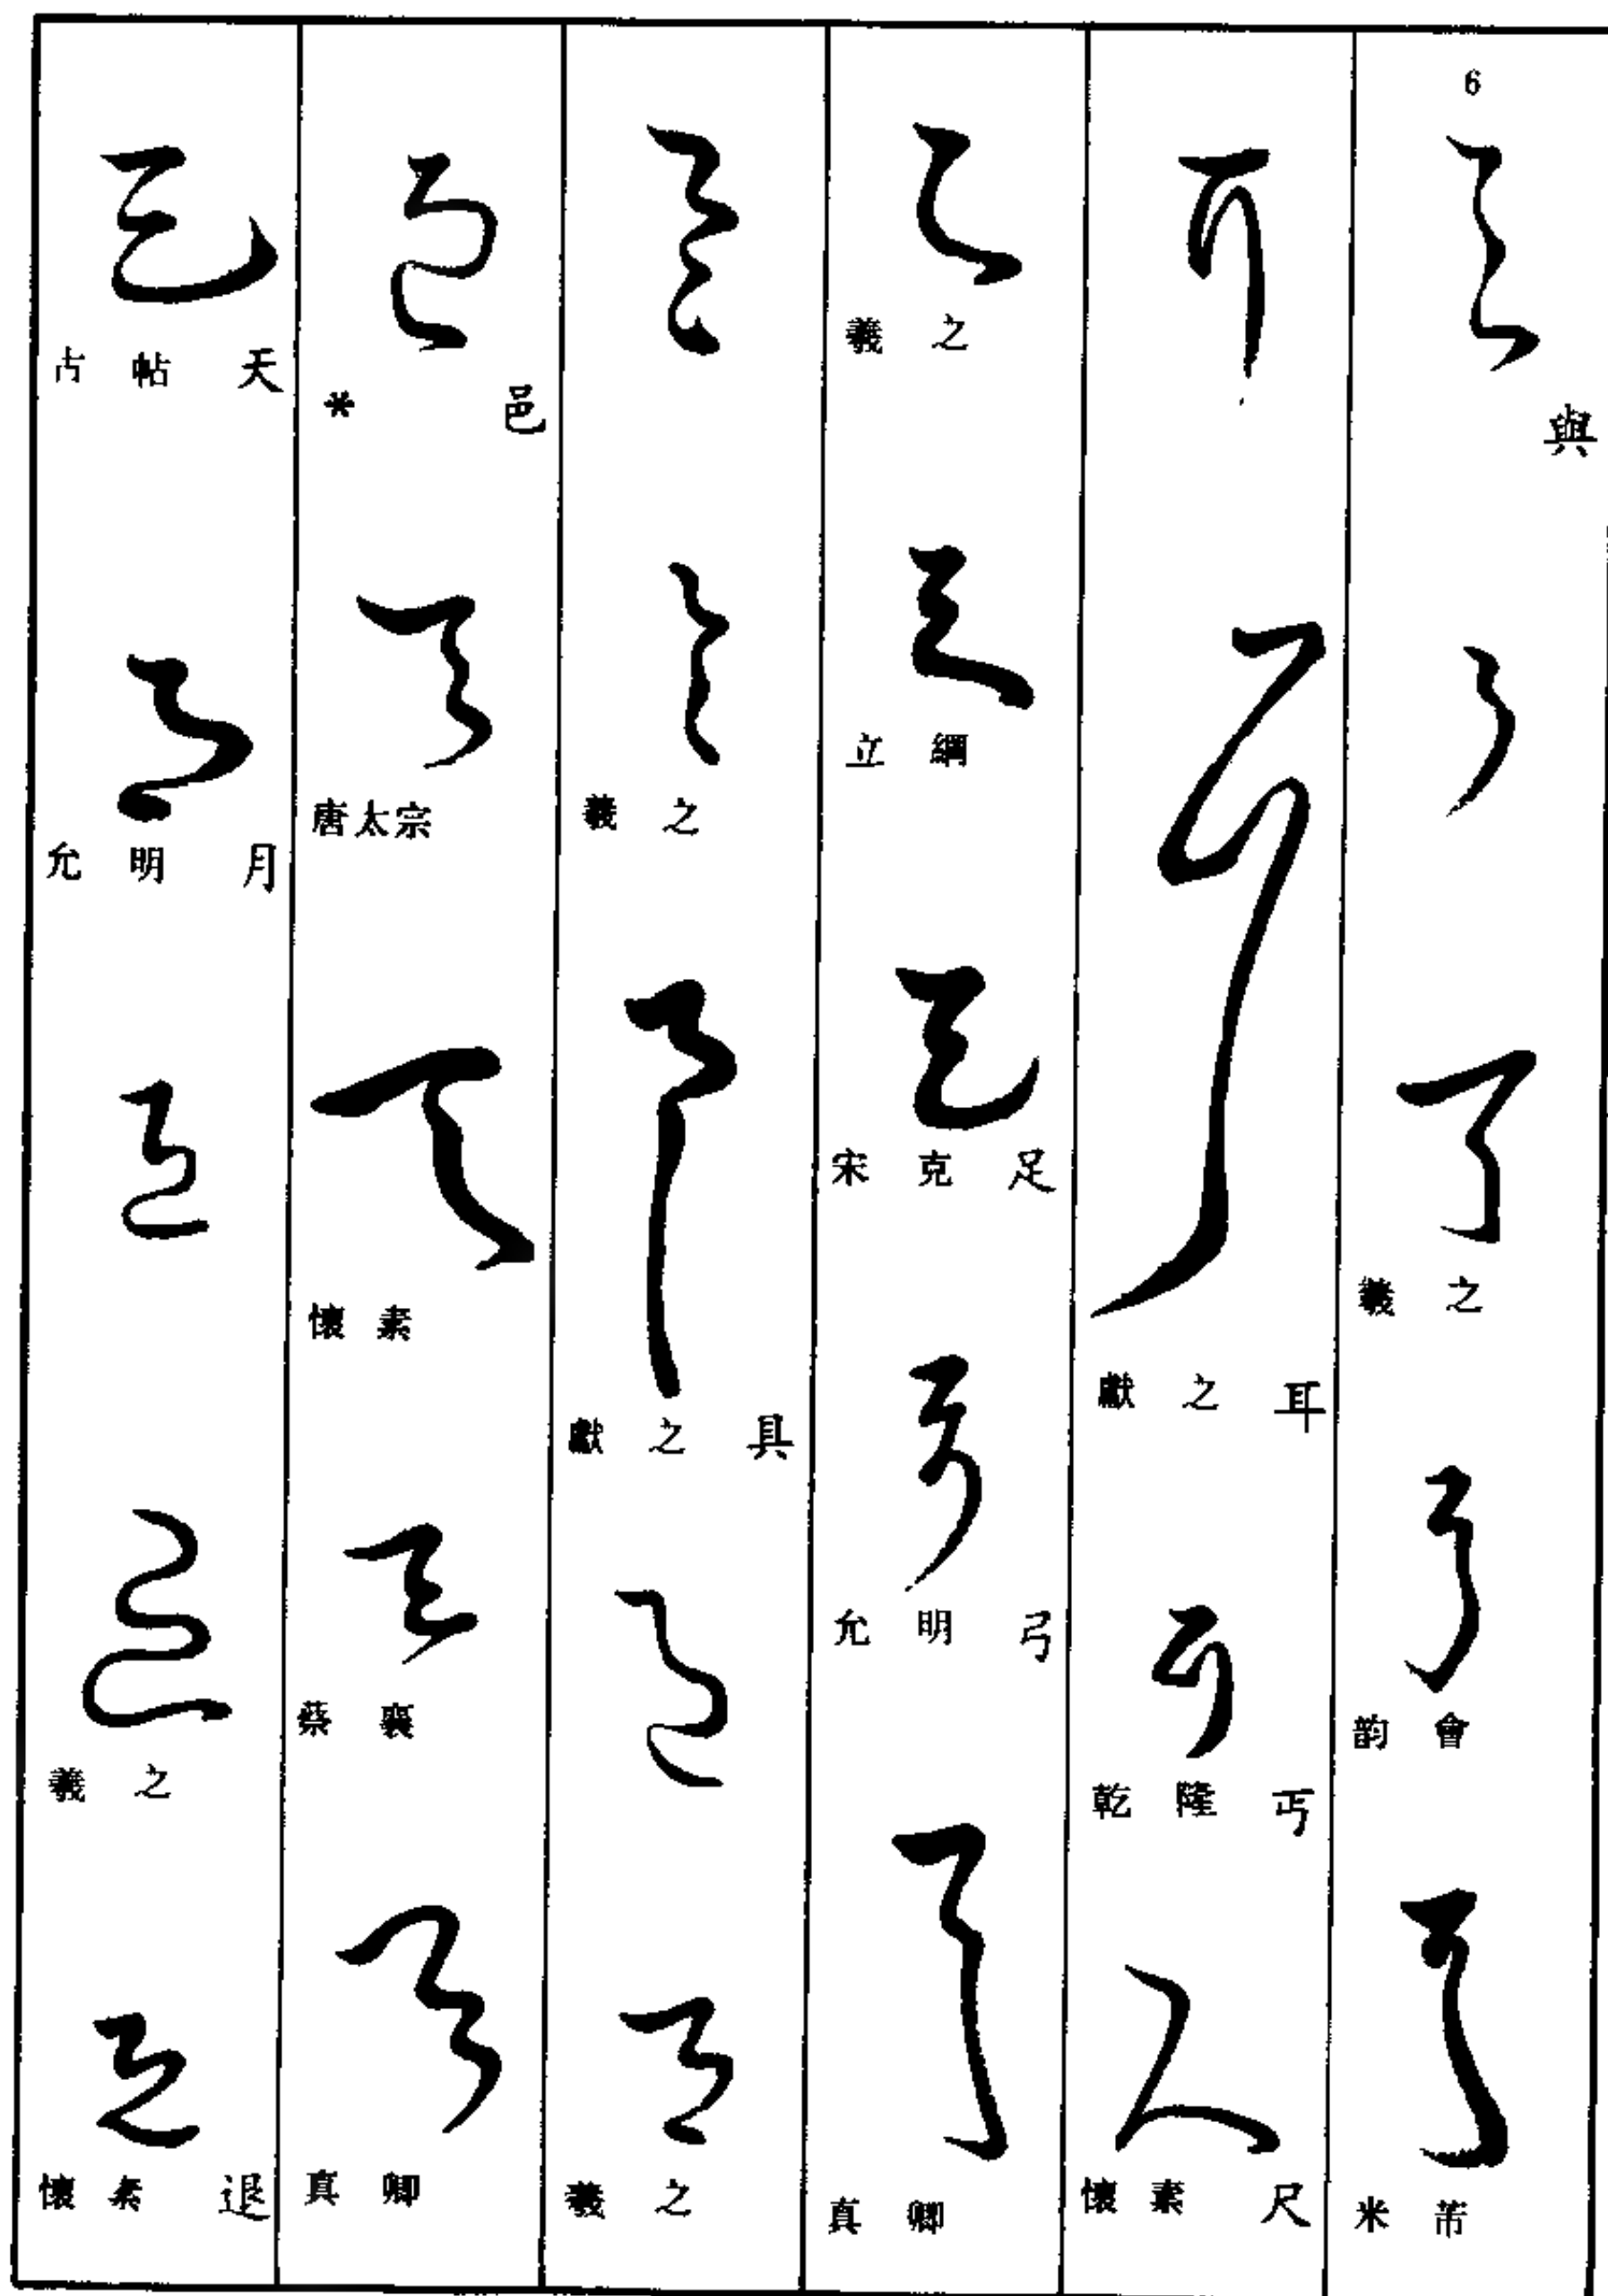 6
與
羲之
韵會
米芾
獻之 耳
乾隆 丐
懷素 尺
羲之
立綱
宋克 足
允明 弓
真卿
羲之
獻之 具
羲之
* 邑
唐太宗
懷素
蔡襄
真卿
古帖 天
允明 月
羲之
懷素 退